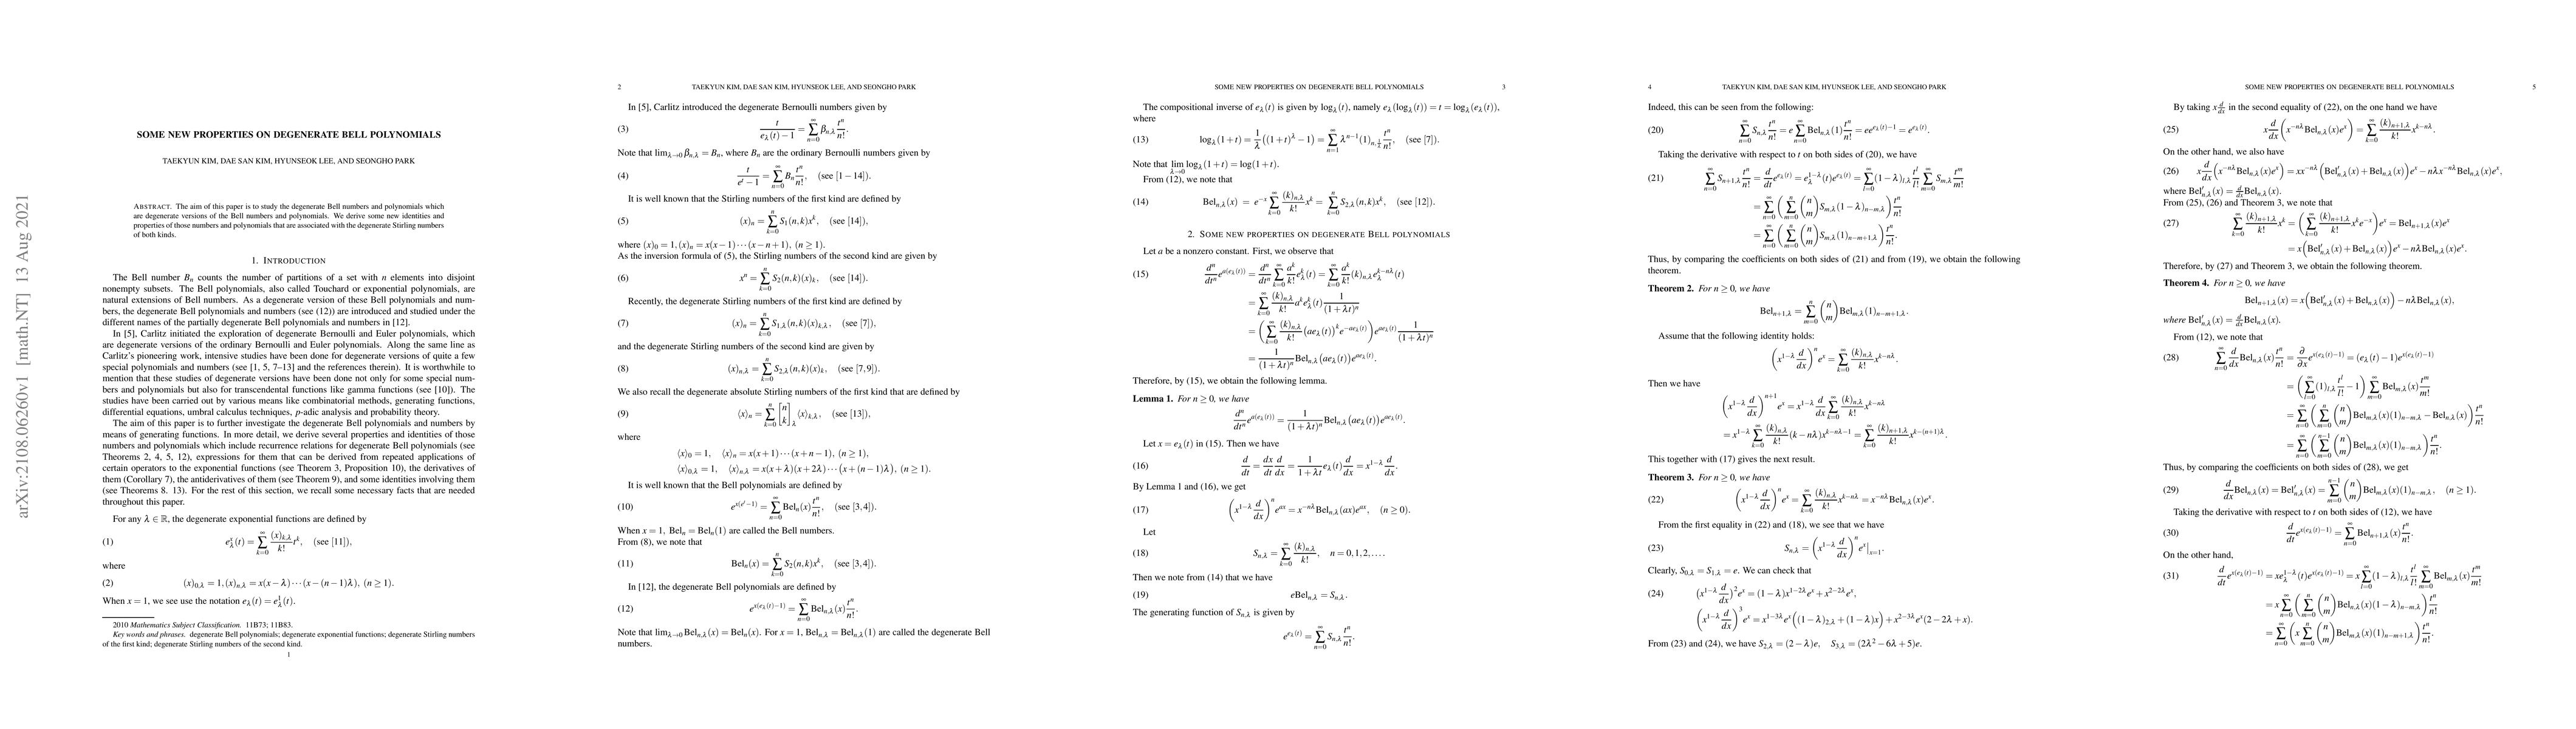 arXiv:2108.06260v1 [math.NT] 13 Aug 2021
SOME NEW PROPERTIES ON DEGENERATE BELL POLYNOMIALS
TAEKYUN KIM, DAE SAN KIM, HYUNSEOK LEE, AND SEONGHO PARK
ABSTRACT. The aim of this paper is to study the degenerate Bell numbers and polynomials which
are degenerate versions of the Bell numbers and polynomials. We derive some new identities and
properties of those numbers and polynomials that are associated with the degenerate Stirling numbers
of both kinds.
1. INTRODUCTION
The Bell number B_n counts the number of partitions of a set with n elements into disjoint
nonempty subsets. The Bell polynomials, also called Touchard or exponential polynomials, are
natural extensions of Bell numbers. As a degenerate version of these Bell polynomials and num-
bers, the degenerate Bell polynomials and numbers (see (12)) are introduced and studied under the
different names of the partially degenerate Bell polynomials and numbers in [12].
In [5], Carlitz initiated the exploration of degenerate Bernoulli and Euler polynomials, which
are degenerate versions of the ordinary Bernoulli and Euler polynomials. Along the same line as
Carlitz's pioneering work, intensive studies have been done for degenerate versions of quite a few
special polynomials and numbers (see [1, 5, 7–13] and the references therein). It is worthwhile to
mention that these studies of degenerate versions have been done not only for some special num-
bers and polynomials but also for transcendental functions like gamma functions (see [10]). The
studies have been carried out by various means like combinatorial methods, generating functions,
differential equations, umbral calculus techniques, p-adic analysis and probability theory.
The aim of this paper is to further investigate the degenerate Bell polynomials and numbers by
means of generating functions. In more detail, we derive several properties and identities of those
numbers and polynomials which include recurrence relations for degenerate Bell polynomials (see
Theorems 2, 4, 5, 12), expressions for them that can be derived from repeated applications of
certain operators to the exponential functions (see Theorem 3, Proposition 10), the derivatives of
them (Corollary 7), the antiderivatives of them (see Theorem 9), and some identities involving them
(see Theorems 8. 13). For the rest of this section, we recall some necessary facts that are needed
throughout this paper.
For any λ ∈ ℝ, the degenerate exponential functions are defined by
(1) e_λ^x(t) = ∑_{k=0}^∞ (x)_{k,λ}/k! t^k, (see [11]),
where
(2) (x)_{0,λ} = 1, (x)_{n,λ} = x(x−λ)···(x−(n−1)λ), (n ≥ 1).
When x = 1, we see use the notation e_λ(t) = e_λ^1(t).
2010 Mathematics Subject Classification. 11B73; 11B83.
Key words and phrases. degenerate Bell polynomials; degenerate exponential functions; degenerate Stirling numbers
of the first kind; degenerate Stirling numbers of the second kind.
1
2 TAEKYUN KIM, DAE SAN KIM, HYUNSEOK LEE, AND SEONGHO PARK
In [5], Carlitz introduced the degenerate Bernoulli numbers given by
(3) t/(e_λ(t)−1) = ∑_{n=0}^∞ β_{n,λ} t^n/n!.
Note that lim_{λ→0} β_{n,λ} = B_n, where B_n are the ordinary Bernoulli numbers given by
(4) t/(e^t−1) = ∑_{n=0}^∞ B_n t^n/n!, (see [1−14]).
It is well known that the Stirling numbers of the first kind are defined by
(5) (x)_n = ∑_{k=0}^n S_1(n,k)x^k, (see [14]),
where (x)_0 = 1, (x)_n = x(x−1)···(x−n+1), (n ≥ 1).
As the inversion formula of (5), the Stirling numbers of the second kind are given by
(6) x^n = ∑_{k=0}^n S_2(n,k)(x)_k, (see [14]).
Recently, the degenerate Stirling numbers of the first kind are defined by
(7) (x)_n = ∑_{k=0}^n S_{1,λ}(n,k)(x)_{k,λ}, (see [7]),
and the degenerate Stirling numbers of the second kind are given by
(8) (x)_{n,λ} = ∑_{k=0}^n S_{2,λ}(n,k)(x)_k, (see [7,9]).
We also recall the degenerate absolute Stirling numbers of the first kind that are defined by
(9) ⟨x⟩_n = ∑_{k=0}^n [n k]_λ ⟨x⟩_{k,λ}, (see [13]),
where
⟨x⟩_0 = 1, ⟨x⟩_n = x(x+1)···(x+n−1), (n ≥ 1),
⟨x⟩_{0,λ} = 1, ⟨x⟩_{n,λ} = x(x+λ)(x+2λ)···(x+(n−1)λ), (n ≥ 1).
It is well known that the Bell polynomials are defined by
(10) e^{x(e^t−1)} = ∑_{n=0}^∞ Bel_n(x) t^n/n!, (see [3,4]).
When x = 1, Bel_n = Bel_n(1) are called the Bell numbers.
From (8), we note that
(11) Bel_n(x) = ∑_{k=0}^n S_2(n,k)x^k, (see [3,4]).
In [12], the degenerate Bell polynomials are defined by
(12) e^{x(e_λ(t)−1)} = ∑_{n=0}^∞ Bel_{n,λ}(x) t^n/n!.
Note that lim_{λ→0} Bel_{n,λ}(x) = Bel_n(x). For x = 1, Bel_{n,λ} = Bel_{n,λ}(1) are called the degenerate Bell
numbers.
SOME NEW PROPERTIES ON DEGENERATE BELL POLYNOMIALS 3
The compositional inverse of e_λ(t) is given by log_λ(t), namely e_λ(log_λ(t)) = t = log_λ(e_λ(t)),
where
(13) log_λ(1+t) = 1/λ((1+t)^λ − 1) = ∑_{n=1}^∞ λ^{n−1}(1)_{n,1/λ} t^n/n!, (see [7]).
Note that lim_{λ→0} log_λ(1+t) = log(1+t).
From (12), we note that
(14) Bel_{n,λ}(x) = e^{−x} ∑_{k=0}^∞ (k)_{n,λ}/k! x^k = ∑_{k=0}^n S_{2,λ}(n,k)x^k, (see [12]).
2. SOME NEW PROPERTIES ON DEGENERATE BELL POLYNOMIALS
Let a be a nonzero constant. First, we observe that
(15) d^n/dt^n e^{a(e_λ(t))} = d^n/dt^n ∑_{k=0}^∞ a^k/k! e_λ^k(t) = ∑_{k=0}^∞ a^k/k! (k)_{n,λ} e_λ^{k−nλ}(t)
= ∑_{k=0}^∞ (k)_{n,λ}/k! a^k e_λ^k(t) 1/(1+λt)^n
= (∑_{k=0}^∞ (k)_{n,λ}/k! (ae_λ(t))^k e^{−ae_λ(t)}) e^{ae_λ(t)} 1/(1+λt)^n
= 1/(1+λt)^n Bel_{n,λ}(ae_λ(t))e^{ae_λ(t)}.
Therefore, by (15), we obtain the following lemma.
Lemma 1. For n ≥ 0, we have
d^n/dt^n e^{a(e_λ(t))} = 1/(1+λt)^n Bel_{n,λ}(ae_λ(t))e^{ae_λ(t)}.
Let x = e_λ(t) in (15). Then we have
(16) d/dt = dx/dt d/dx = 1/(1+λt) e_λ(t) d/dx = x^{1−λ} d/dx.
By Lemma 1 and (16), we get
(17) (x^{1−λ} d/dx)^n e^{ax} = x^{−nλ}Bel_{n,λ}(ax)e^{ax}, (n ≥ 0).
Let
(18) S_{n,λ} = ∑_{k=0}^∞ (k)_{n,λ}/k!, n = 0,1,2,....
Then we note from (14) that we have
(19) eBel_{n,λ} = S_{n,λ}.
The generating function of S_{n,λ} is given by
e^{e_λ(t)} = ∑_{n=0}^∞ S_{n,λ} t^n/n!.
4 TAEKYUN KIM, DAE SAN KIM, HYUNSEOK LEE, AND SEONGHO PARK
Indeed, this can be seen from the following:
(20) ∑_{n=0}^∞ S_{n,λ} t^n/n! = e ∑_{n=0}^∞ Bel_{n,λ}(1) t^n/n! = ee^{e_λ(t)−1} = e^{e_λ(t)}.
Taking the derivative with respect to t on both sides of (20), we have
(21) ∑_{n=0}^∞ S_{n+1,λ} t^n/n! = d/dt e^{e_λ(t)} = e_λ^{1−λ}(t)e^{e_λ(t)} = ∑_{l=0}^∞ (1−λ)_{l,λ} t^l/l! ∑_{m=0}^∞ S_{m,λ} t^m/m!
= ∑_{n=0}^∞ (∑_{m=0}^n (n m) S_{m,λ}(1−λ)_{n−m,λ}) t^n/n!
= ∑_{n=0}^∞ (∑_{m=0}^n (n m) S_{m,λ}(1)_{n−m+1,λ}) t^n/n!.
Thus, by comparing the coefficients on both sides of (21) and from (19), we obtain the following
theorem.
Theorem 2. For n ≥ 0, we have
Bel_{n+1,λ} = ∑_{m=0}^n (n m) Bel_{m,λ}(1)_{n−m+1,λ}.
Assume that the following identity holds:
(x^{1−λ} d/dx)^n e^x = ∑_{k=0}^∞ (k)_{n,λ}/k! x^{k−nλ}.
Then we have
(x^{1−λ} d/dx)^{n+1} e^x = x^{1−λ} d/dx ∑_{k=0}^∞ (k)_{n,λ}/k! x^{k−nλ}
= x^{1−λ} ∑_{k=0}^∞ (k)_{n,λ}/k! (k−nλ)x^{k−nλ−1} = ∑_{k=0}^∞ (k)_{n+1,λ}/k! x^{k−(n+1)λ}.
This together with (17) gives the next result.
Theorem 3. For n ≥ 0, we have
(22) (x^{1−λ} d/dx)^n e^x = ∑_{k=0}^∞ (k)_{n,λ}/k! x^{k−nλ} = x^{−nλ}Bel_{n,λ}(x)e^x.
From the first equality in (22) and (18), we see that we have
(23) S_{n,λ} = (x^{1−λ} d/dx)^n e^x|_{x=1}.
Clearly, S_{0,λ} = S_{1,λ} = e. We can check that
(24) (x^{1−λ} d/dx)^2 e^x = (1−λ)x^{1−2λ}e^x + x^{2−2λ}e^x,
(x^{1−λ} d/dx)^3 e^x = x^{1−3λ}e^x((1−λ)_{2,λ} + (1−λ)x) + x^{2−3λ}e^x(2−2λ+x).
From (23) and (24), we have S_{2,λ} = (2−λ)e, S_{3,λ} = (2λ^2−6λ+5)e.
SOME NEW PROPERTIES ON DEGENERATE BELL POLYNOMIALS 5
By taking x d/dx in the second equality of (22), on the one hand we have
(25) x d/dx (x^{−nλ}Bel_{n,λ}(x)e^x) = ∑_{k=0}^∞ (k)_{n+1,λ}/k! x^{k−nλ}.
On the other hand, we also have
(26) x d/dx (x^{−nλ}Bel_{n,λ}(x)e^x) = xx^{−nλ}(Bel′_{n,λ}(x)+Bel_{n,λ}(x))e^x − nλx^{−nλ}Bel_{n,λ}(x)e^x,
where Bel′_{n,λ}(x) = d/dx Bel_{n,λ}(x).
From (25), (26) and Theorem 3, we note that
(27) ∑_{k=0}^∞ (k)_{n+1,λ}/k! x^k = (∑_{k=0}^∞ (k)_{n+1,λ}/k! x^k e^{−x}) e^x = Bel_{n+1,λ}(x)e^x
= x(Bel′_{n,λ}(x)+Bel_{n,λ}(x))e^x − nλBel_{n,λ}(x)e^x.
Therefore, by (27) and Theorem 3, we obtain the following theorem.
Theorem 4. For n ≥ 0, we have
Bel_{n+1,λ} = x(Bel′_{n,λ}(x)+Bel_{n,λ}(x)) − nλBel_{n,λ}(x),
where Bel′_{n,λ}(x) = d/dx Bel_{n,λ}(x).
From (12), we note that
(28) ∑_{n=0}^∞ d/dx Bel_{n,λ}(x) t^n/n! = ∂/∂x e^{x(e_λ(t)−1)} = (e_λ(t)−1)e^{x(e_λ(t)−1)}
= (∑_{l=0}^∞ (1)_{l,λ} t^l/l! − 1) ∑_{m=0}^∞ Bel_{m,λ}(x) t^m/m!
= ∑_{n=0}^∞ (∑_{m=0}^n (n m) Bel_{m,λ}(x)(1)_{n−m,λ} − Bel_{n,λ}(x)) t^n/n!
= ∑_{n=0}^∞ (∑_{m=0}^{n−1} (n m) Bel_{m,λ}(x)(1)_{n−m,λ}) t^n/n!.
Thus, by comparing the coefficients on both sides of (28), we get
(29) d/dx Bel_{n,λ}(x) = Bel′_{n,λ}(x) = ∑_{m=0}^{n−1} (n m) Bel_{m,λ}(x)(1)_{n−m,λ}, (n ≥ 1).
Taking the derivative with respect to t on both sides of (12), we have
(30) d/dt e^{x(e_λ(t)−1)} = ∑_{n=0}^∞ Bel_{n+1,λ}(x) t^n/n!.
On the other hand,
(31) d/dt e^{x(e_λ(t)−1)} = xe_λ^{1−λ}(t)e^{x(e_λ(t)−1)} = x ∑_{l=0}^∞ (1−λ)_{l,λ} t^l/l! ∑_{m=0}^∞ Bel_{m,λ}(x) t^m/m!
= x ∑_{n=0}^∞ (∑_{m=0}^n (n m) Bel_{m,λ}(x)(1−λ)_{n−m,λ}) t^n/n!
= ∑_{n=0}^∞ (x ∑_{m=0}^n (n m) Bel_{m,λ}(x)(1)_{n−m+1,λ}) t^n/n!.